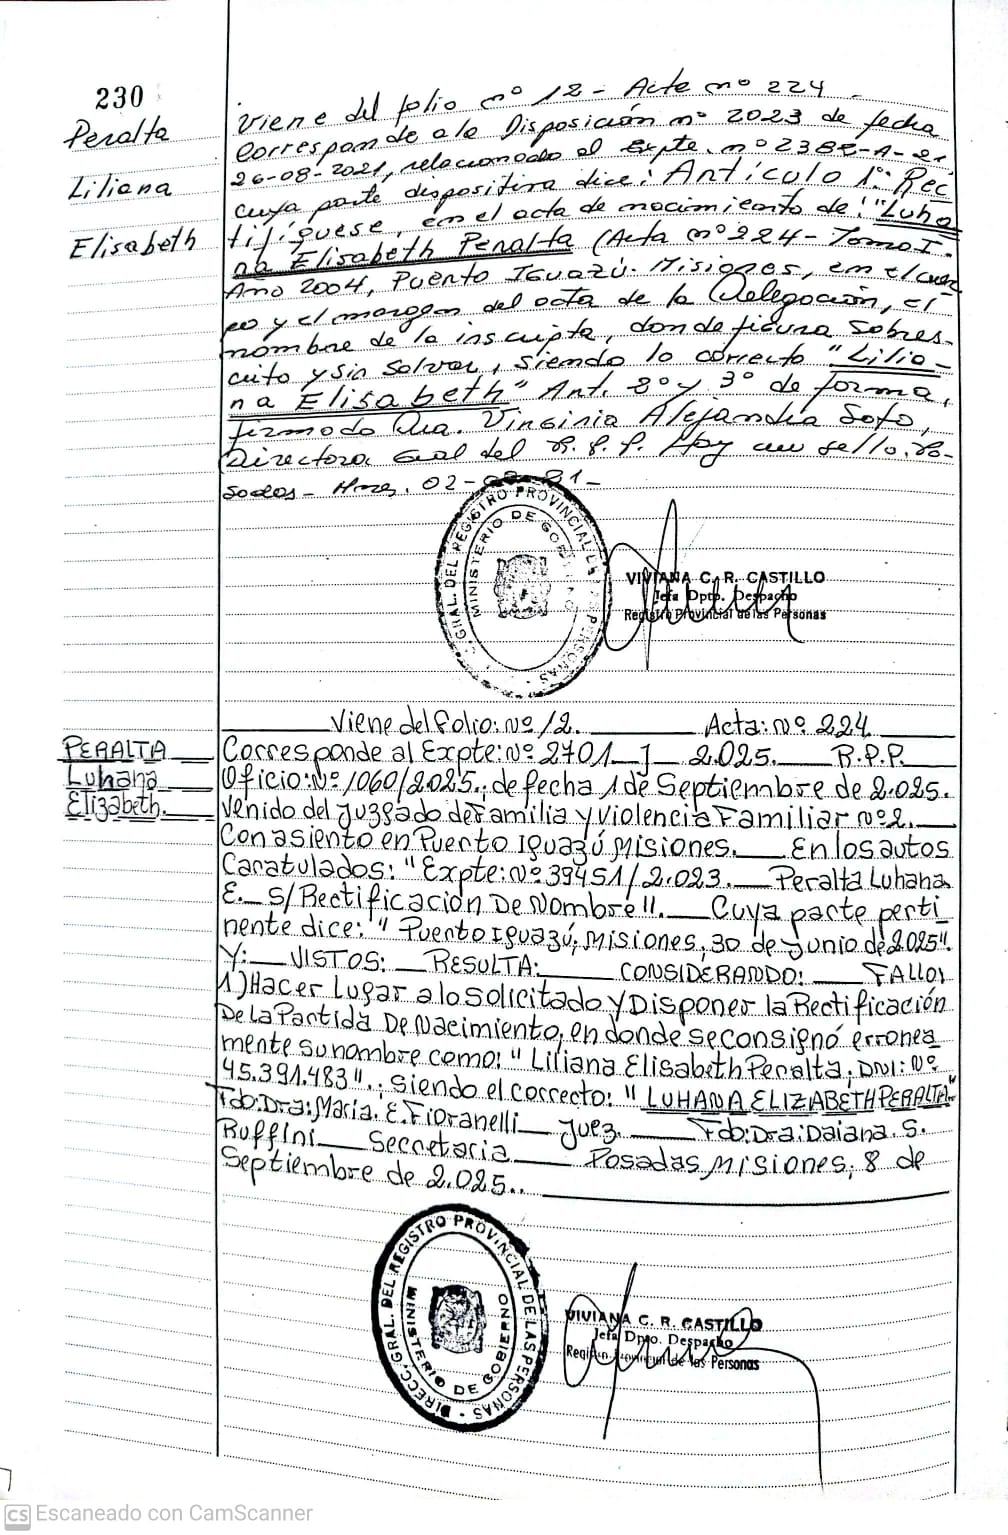 230
Peralta
Liliana
Elisabeth
Viene del folio nº 12 - Acta nº 224 -
Corresponde a la Disposición nº 2023 de fecha
26-08-2021, relacionado al Expte. nº 2388-A-21
cuya parte dispositiva dice: Artículo 1º: Rec
tifíquese, en el acta de nacimiento de: "Luha
na Elisabeth Peralta (Acta nº 224 - Tomo I -
Año 2004, Puerto Iguazú - Misiones, en el cuer
po y el margen del acta de la Delegación, el
nombre de la inscripta, donde figura sobres-
crito y sin salvar, siendo lo correcto "Lilia-
na Elisabeth" Art. 2º y 3º de forma,
firmado Dra. Virginia Alejandra Soto,
Directora Gral del R.P.P. Hay un sello. Po-
sadas - Mnes, 02-
DIRECC. GRAL. DEL REGISTRO PROVINCIAL DE LAS PERSONAS
MINISTERIO DE GOBIERNO
VIVIANA C. R. CASTILLO
Jefa Dpto. Despacho
Registro Provincial de las Personas
Viene del Folio: Nº 12. Acta: Nº 224
PERALTA
Luhana
Elizabeth.
Corresponde al Expte: Nº 2701 - J - 2.025. R.P.P.
Oficio: Nº 1060/2.025. de fecha 1 de Septiembre de 2.025.
venido del Juzgado de Familia y Violencia Familiar Nº 2.
Con asiento en Puerto Iguazú Misiones. En los autos
Caratulados: "Expte: Nº 39451/2.023. Peralta Luhana
E. S/Rectificación De Nombre". Cuya parte perti
nente dice: " Puerto Iguazú, Misiones, 30 de Junio de 2.025".
Y: VISTOS: RESULTA: CONSIDERANDO: FALLO:
1) Hacer Lugar a lo Solicitado y Disponer la Rectificación
De La Partida De Nacimiento, en donde se consignó erronea
mente su nombre como: " Liliana Elisabeth Peralta, DNI: Nº
45.391.483". Siendo el correcto: " LUHANA ELIZABETH PERALTA"
Fdo: Dra: María. E. Fioranelli Juez. Fdo: Dra: Daiana. S.
Ruffini Secretaria Posadas Misiones, 8 de
Septiembre de 2.025..
DIRECC. GRAL. DEL REGISTRO PROVINCIAL DE LAS PERSONAS
MINISTERIO DE GOBIERNO
VIVIANA C. R. CASTILLO
Jefa Dpto. Despacho
Registro Provincial de las Personas
CS Escaneado con CamScanner